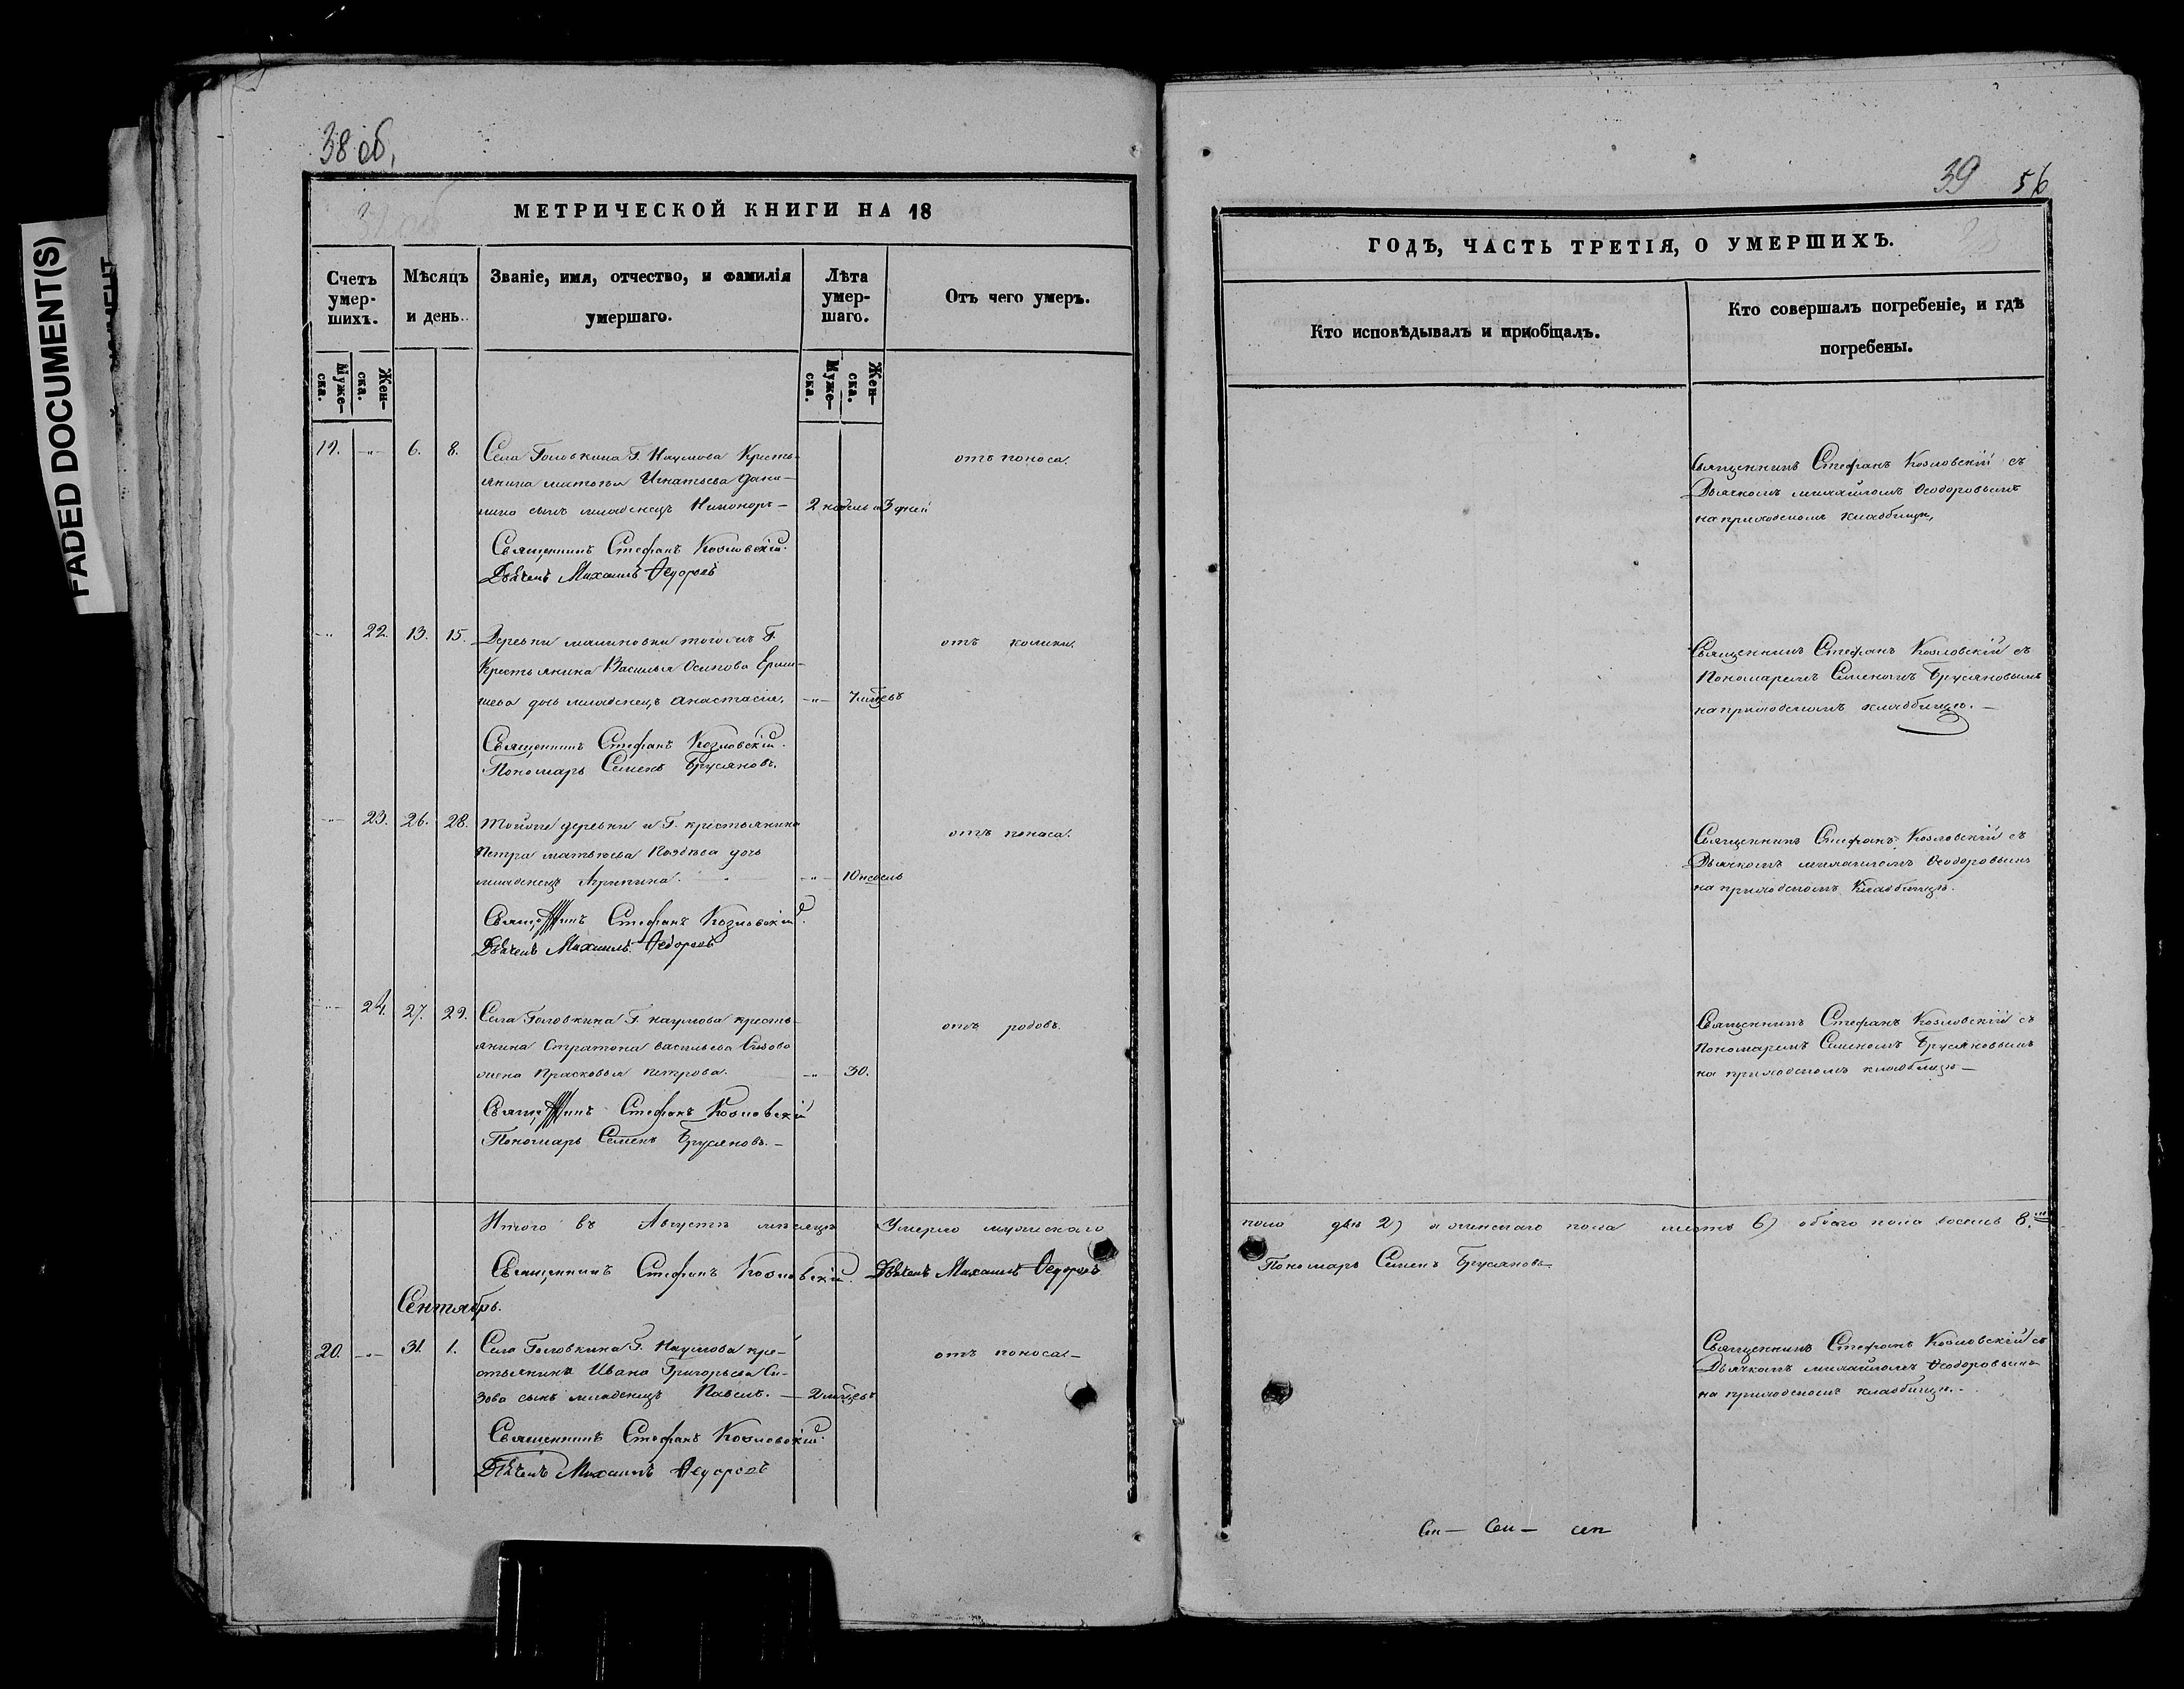 38 об.
39 56
FADED DOCUMENT(S)
МЕТРИЧЕСКОЙ КНИГИ НА 18
ГОДЪ, ЧАСТЬ ТРЕТІЯ, О УМЕРШИХЪ.
Счетъ умер-шихъ.
Муже-ска.
Жен-ска.
Мѣсяцъ и день.
Званіе, имя, отчество, и фамилія умершаго.
Лѣта умер-шаго.
Муже-ска.
Жен-ска.
Отъ чего умеръ.
Кто исповѣдывалъ и приобщалъ.
Кто совершалъ погребеніе, и гдѣ погребены.
19. -"- 6. 8. Села Головкина Г. Наумова Кресть-
янина Игнатьева Дани-
сынъ младенецъ 2 недель и 3 дней
отъ поноса.
Священникъ Стефанъ Козловскій съ
Дьячкомъ Михаиломъ Ѳеодоровымъ
на приходскомъ кладбищѣ,
Священникъ Стефанъ Козловскій.
Дьячекъ Михаилъ Ѳедоровъ
-"- 22. 13. 15. Деревни тогожъ Г.
Крестьянина Василья Осипова Ерми-
шева дочь младенецъ Анастасія, -"- 7 мѣсцевъ
отъ колики.
Священникъ Стефанъ Козловскій съ
Пономаремъ Семеномъ Брусяновымъ
на приходскомъ кладбищѣ. —
Священникъ Стефанъ Козловскій.
Пономарь Семенъ Брусяновъ.
-"- 23. 26. 28. Тойже деревни и Г. крестьянина
Петра Матвѣева дочь
младенецъ Агрипина. -"- 10 недель
отъ поноса.
Священникъ Стефанъ Козловскій съ
Дьячкомъ Михаиломъ Ѳеодоровымъ
на приходскомъ Кладбищѣ.
Стефанъ Козловскій.
Дьячекъ Михаилъ Ѳедоровъ
-"- 24. 27. 29. Села Головкина Г. Наумова кресть-
янина Стратона Васильева Сизова
жена Прасковья Петрова. -"- 30.
отъ родовъ.
Священникъ Стефанъ Козловскій съ
Пономаремъ Семеномъ Брусяновымъ
на приходскомъ кладбищѣ —
Стефанъ Козловскій
Пономарь Семенъ Брусяновъ. —
Итого въ Августѣ мѣсяцѣ Умерло мужескаго
пола два 2) и женскаго пола шесть 6) обоего пола восемь 8.
Священникъ Стефанъ Козловскій. Дьячекъ Михаилъ Ѳедоровъ
Пономарь Семенъ Брусяновъ
Сентябрь.
20. -"- 31. 1. Села Головкина Г. Наумова кре-
стьянина Ивана Григорьева Си-
зова сынъ младенецъ Павелъ. — 2 мѣсцевъ
отъ поноса —
Священникъ Стефанъ Козловскій съ
Дьячкомъ Михаиломъ Ѳеодоровымъ
на приходскомъ кладбищѣ. —
Священникъ Стефанъ Козловскій.
Дьячекъ Михаилъ Ѳедоровъ